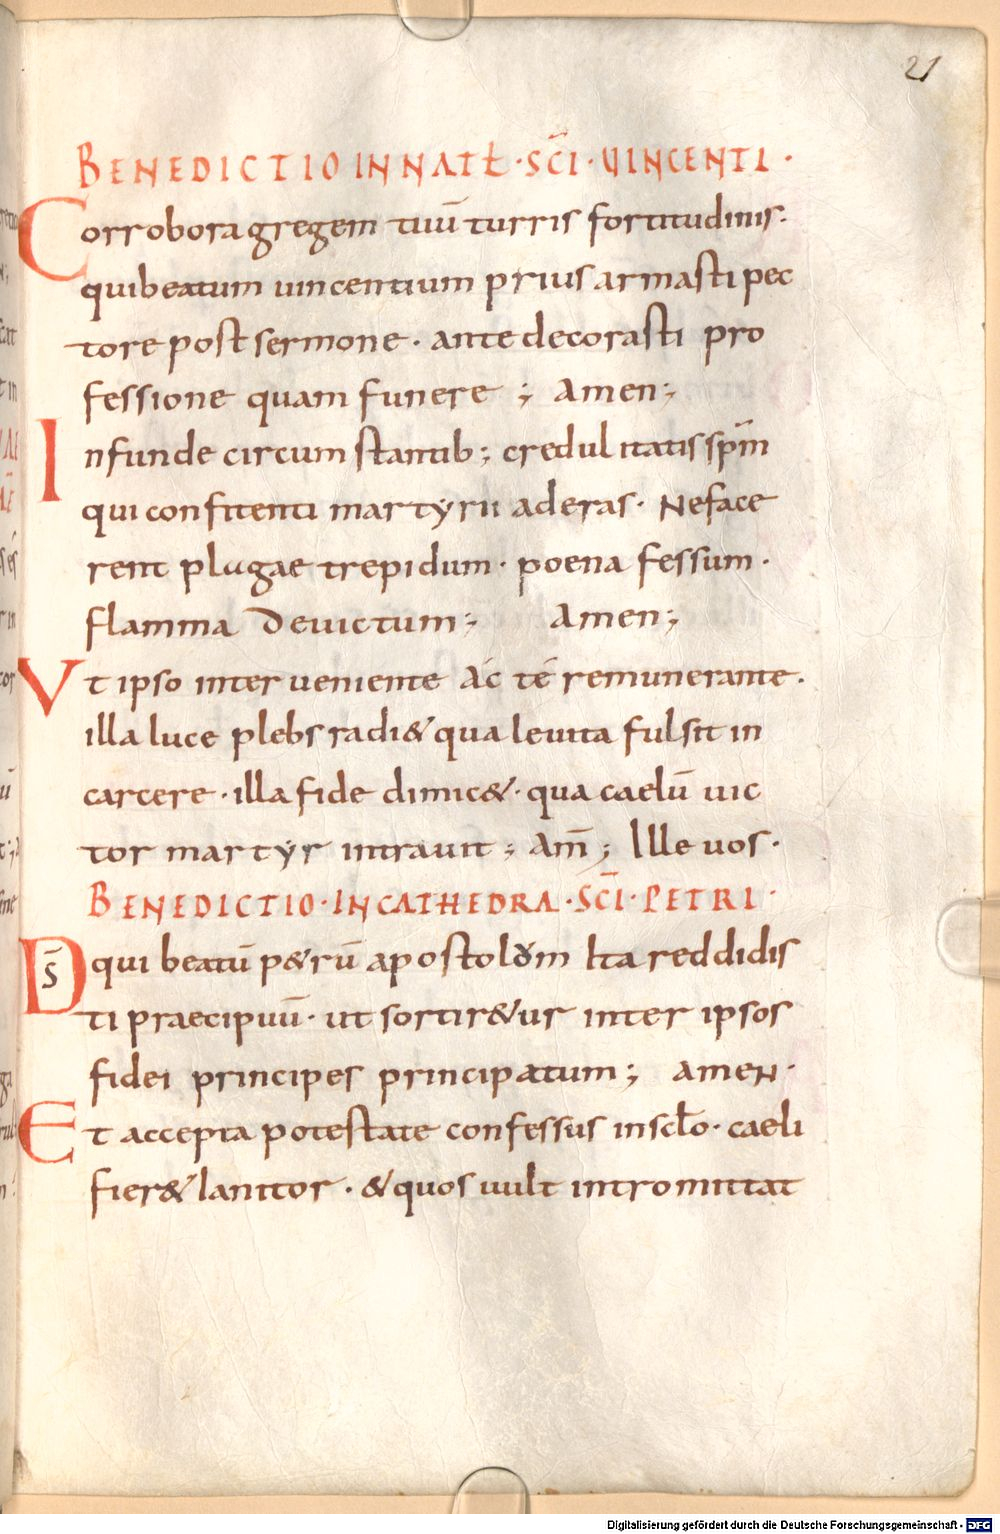 21
BENEDICTIO IN NATŁ · SC̄I · VINCENTI ·
Corrobora gregem tuū turris fortitudinis.
qui beatum uincentium prius armasti pec
tore post sermone · ante decorasti pro
fessione quam funere ; Amen ;
Infunde circumstantib; credulitatis sp̄m
qui confitenti martyrii aderas · Neface
rent plugae trepidum · poena fessum ·
flamma Deuictum ; Amen ;
Vt ipso interueniente Ac̄ tē remunerante .
illa luce plebs radi& qua leuita fulsit in
carcere · illa fide dimic& · qua caelū uic
tor martyr intrauit ; Am̄ ; Ille uos ·
BENEDICTIO · IN CATHEDRA · SC̄I · PETRI ·
D̄s qui beatū p&rū apostolōm Ita reddidis
ti praecipuū · ut sortir&ur inter ipsos
fidei principes principatum ; amen ·
Et accepta potestate confessus in scl̄o · caeli
fier& Ianitor · & quos uult intromittat
Digitalisierung gefördert durch die Deutsche Forschungsgemeinschaft - DFG